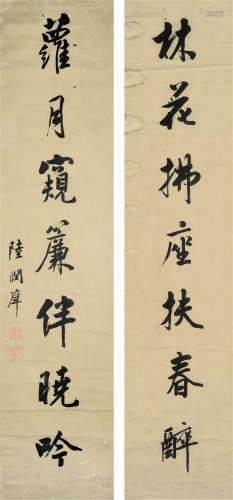 林花拂座扶春醉
蘿月窺簾伴曉吟
陸潤庠